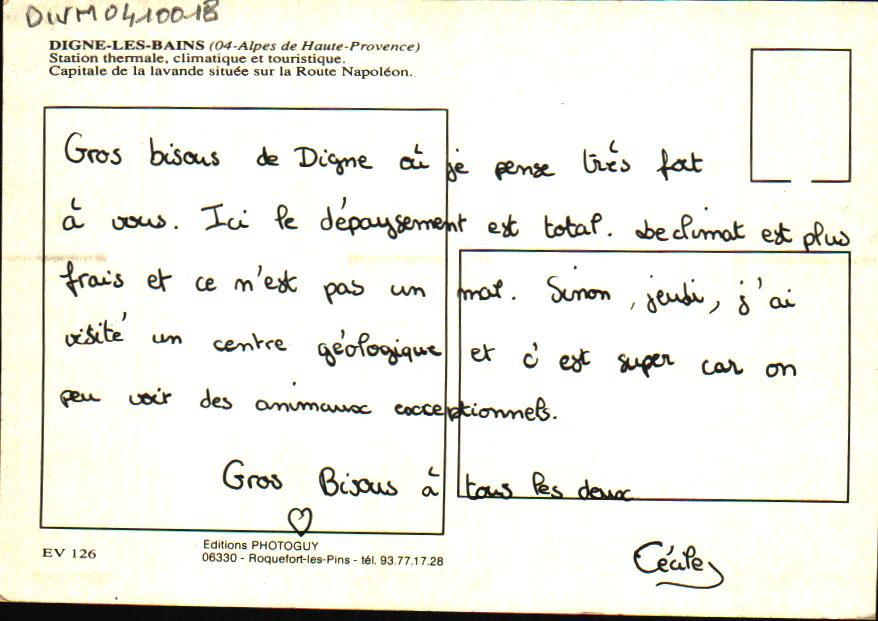 DWM0410018
DIGNE-LES-BAINS (04-Alpes de Haute-Provence)
Station thermale, climatique et touristique.
Capitale de la lavande située sur la Route Napoléon.
Gros bisous de Digne où je pense très fort
à vous. Ici le dépaysement est total. Le climat est plus
frais et ce n'est pas un mal. Sinon, jeudi, j'ai
visité un centre géologique et c'est super car on
peu voir des animaux excceptionnels.
Gros Bisous à tous les deux
♡
Cécile
EV 126
Editions PHOTOGUY
06330 - Roquefort-les-Pins - tél. 93.77.17.28